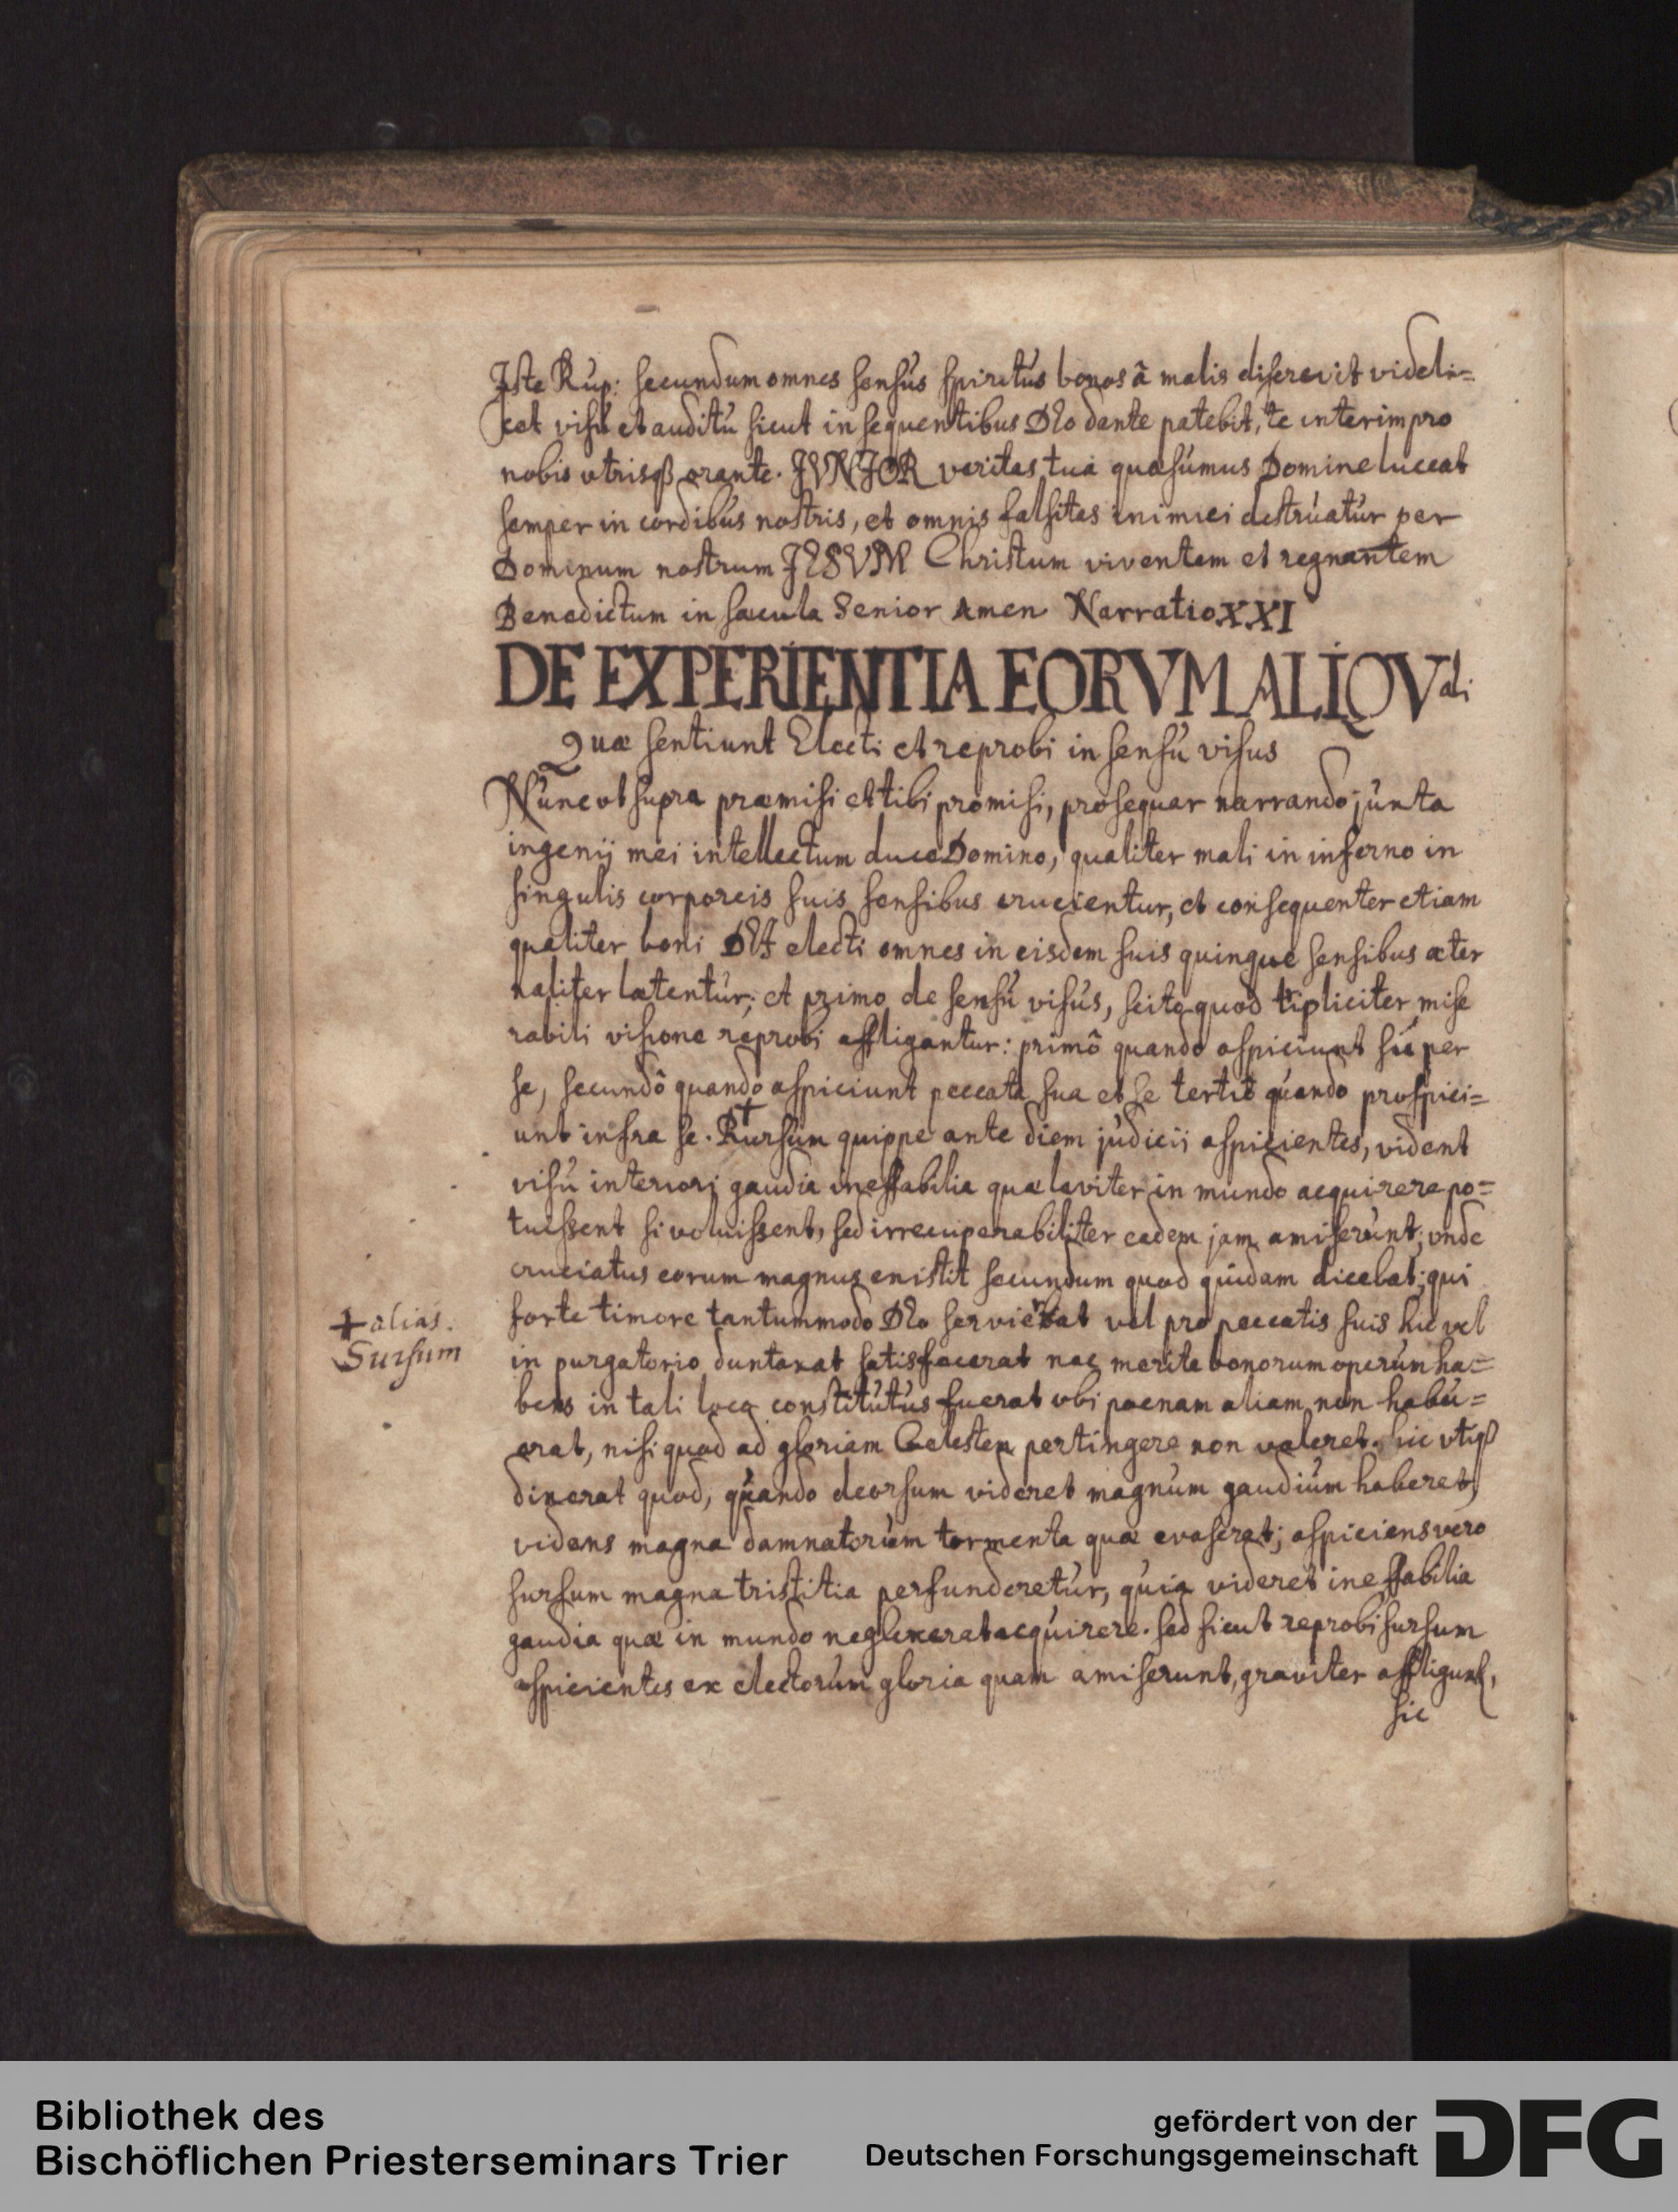 Iste Rup: secundum omnes sensus spiritus bonos â malis discrevit videli=
cet visu et auditu sicut in sequentibus Deo dante patebit, te interim pro
nobis utrisqß orante. IVNIOR veritas tua quæsumus Domine luceat
semper in cordibus nostris, et omnis falsitas inimici destruatur per
Dominum nostrum IESVM Christum viventem et regnantem
Benedictum in sæcula Senior Amen Narratio XXI
DE EXPERIENTIA EORVM ALIQVali
Quæ sentiunt Electi et reprobi in sensu visus
Nunc vt supra præmisi et tibi promisi, prosequar narrando juxta
ingenij mei intellectum duce Domino, qualiter mali in inferno in
singulis corporeis suis sensibus crucientur, et consequenter etiam
qualiter boni DEI electi omnes in eisdem suis quinque sensibus æter
naliter lætentur; et primo de sensu visus, scito quod tripliciter mise
rabili visione reprobi affligantur: primô quando aspiciunt super
se, secundô quando aspiciunt peccata sua et se tertiô quando prospici=
unt infra se. Rursum quippe ante diem judicii aspicientes, vident
visu interiori gaudia ineffabilia quæ leviter in mundo acquirere po=
tuissent si voluissent, sed irrecuperabiliter eadem jam amiserunt; vnde
cruciatus eorum magnus existit secundum quod quidam dicebat; qui
forte timore tantummodo Deo servierat vel pro peccatis suis hic vel
in purgatorio duntaxat satisfacerat nec merita bonorum operum ha=
bens in tali loco constitutus fuerat vbi poenam aliam non habu=
erat, nisi quod ad gloriam Cælestem pertingere non valeret. hic vtiqß
dixerat quod, quando deorsum videret magnum gaudium haberet,
videns magna damnatorum tormenta quæ evaserat; aspiciens vero
sursum magna tristitia perfunderetur, quia videret ineffabilia
gaudia quæ in mundo neglexerat acquirere. sed sicut reprobi sursum
aspicientes ex electorum gloria quam amiserunt, graviter affligunt,
sic
+ alias.
Sursum
Bibliothek des
Bischöflichen Priesterseminars Trier
gefördert von der
Deutschen Forschungsgemeinschaft
DFG